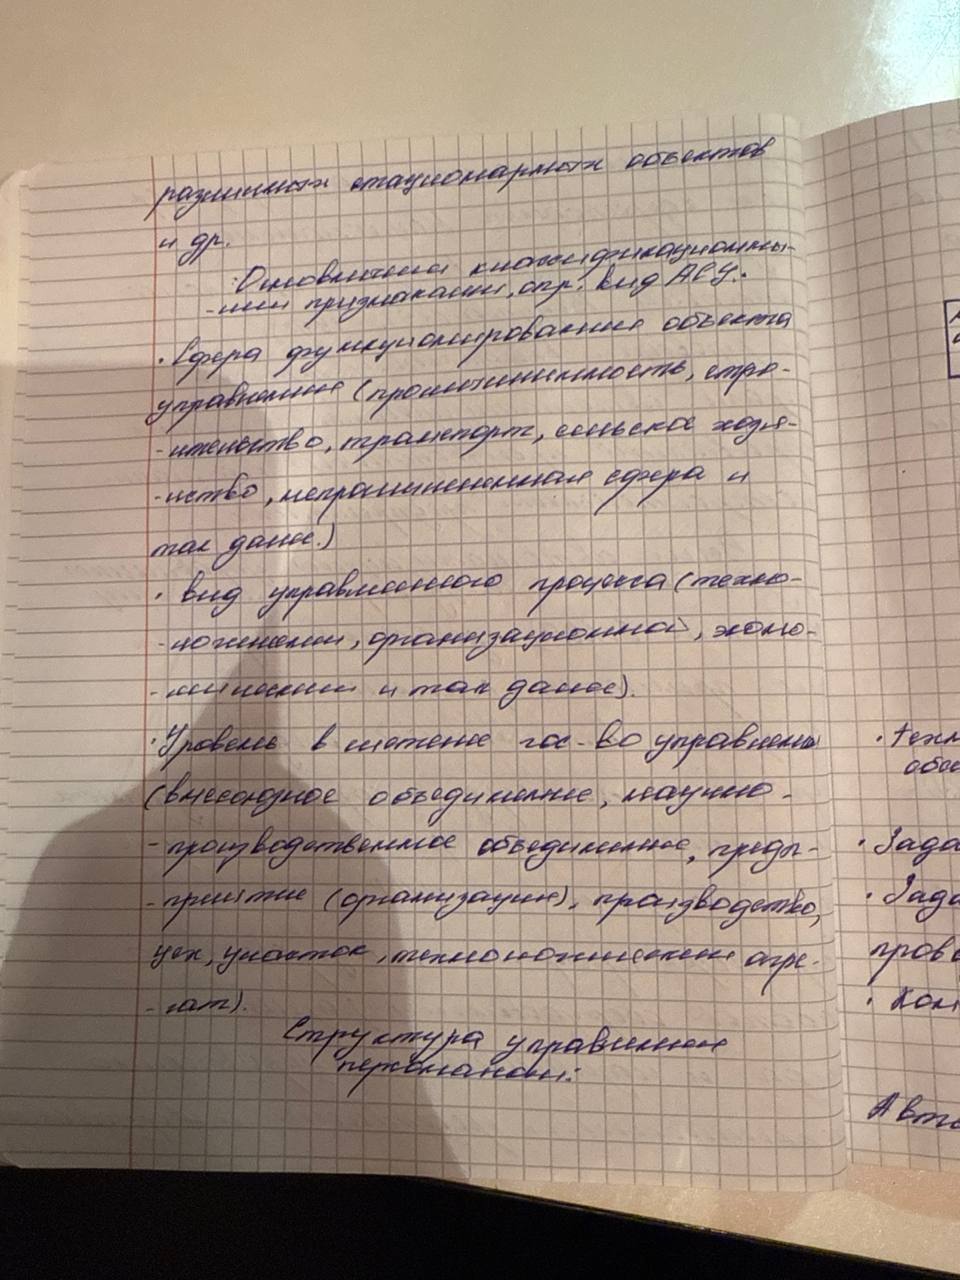 различных стационарных объектов
и др.
Основными классификационны-
-ми признаками, опр. вид АСУ:
· Сфера функционирования объекта
управления (промышленность, строи-
-ительство, транспорт, сельское хозя-
-йство, непромышленная сфера и
так далее.)
· вид управляемого процесса (техно-
-логический, организационной, эконо-
-мический и так далее).
· Уровень в системе гос-во управления
(внесоюзное объединение, научно-
-производственное объединение, предп-
-приятие (организация), производство,
цех, участок, технологический агре-
-гат).
Структура управления
персоналом:
· техн
обос
· Зада
· Зада
пров
· Ком
Авто